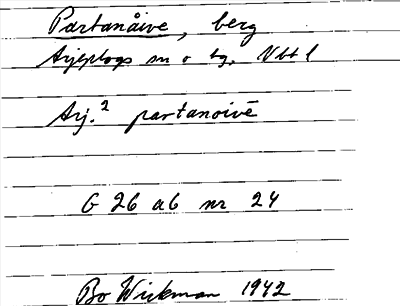 Partanåive, berg
Arjeplogs sn o tg. Vbt l
Arj.² partanoivē
G 26 ab nr 24
Bo Wickman 1942